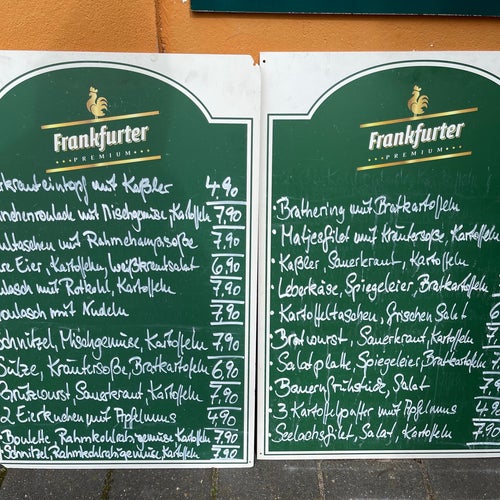 Frankfurter
PREMIUM
mit Kaßler 4,90
mit Mischgemüse, Kartoffeln 7,90
mit Rahmchampsoße 7,90
Eier, Kartoffeln, Weißkrautsalat 6,90
mit Rotkohl, Kartoffeln 7,90
mit Nudeln 7,90
Schnitzel, Mischgemüse, Kartoffeln 7,90
Sülze, Kräutersoße, Bratkartoffeln 6,90
Grützwurst, Sauerkraut, Kartoffeln 7,90
2 Eierkuchen mit Apfelmus 4,90
Boulette, Rahmkohlrabigemüse, Kartoffeln 7,90
Schnitzel, Rahmkohlrabigemüse, Kartoffeln 7,90
Frankfurter
PREMIUM
• Brathering mit Bratkartoffeln
• Matjesfilet mit Kräutersoße, Kartoffeln
• Kaßler, Sauerkraut, Kartoffeln
• Leberkäse, Spiegeleier, Bratkartoffeln
• Kartoffeltaschen, Frischen Salat
• Bratwurst, Sauerkraut, Kartoffeln
• Salatplatte, Spiegeleier, Bratkartoffeln
• Bauernfrühstück, Salat
• 3 Kartoffelpuffer mit Apfelmus 4,
Seelachsfilet, Salat, Kartoffeln